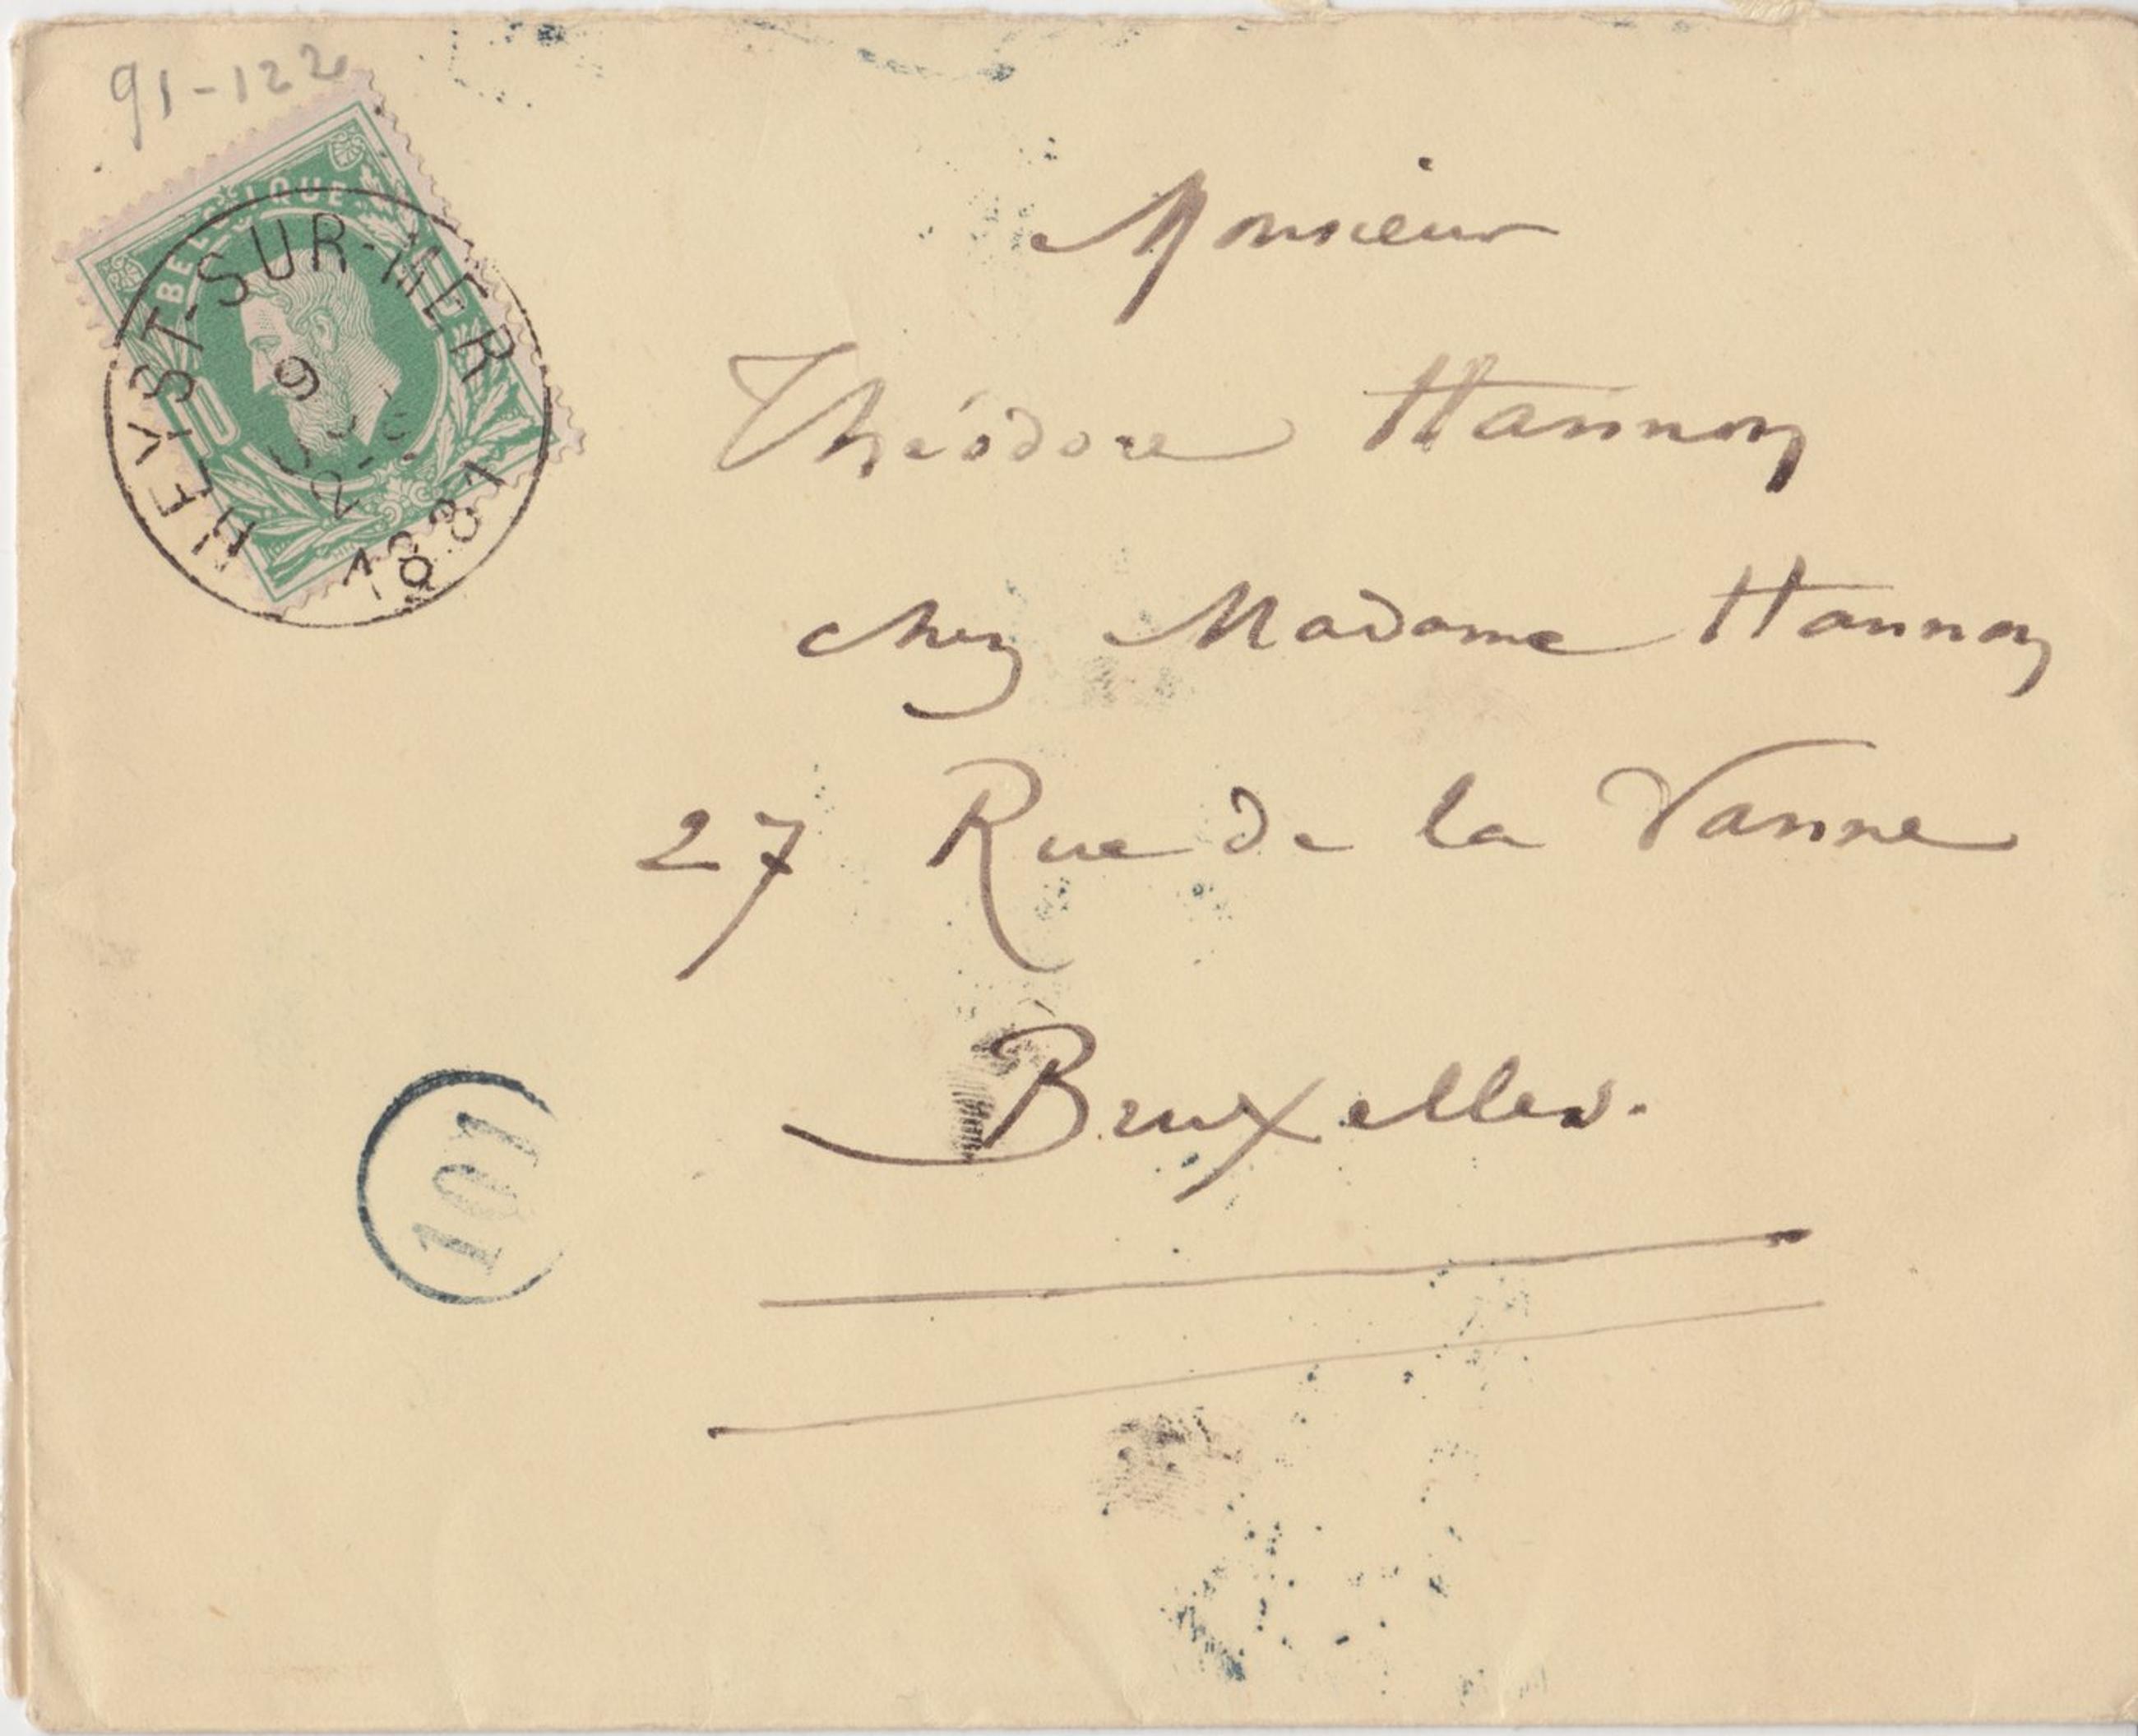 91-122
BELGIQUE
HEYST-SUR-MER
9
2-S
1881
Monsieur
Théodore Hannon
chez Madame Hannon
27 Rue de la Vanne
Bruxelles.
101